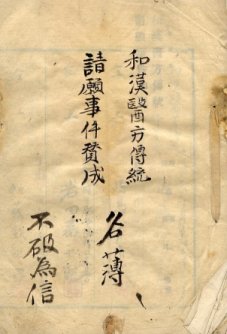 和漢醫方傳統
請願事件賛成
名薄
不破為信